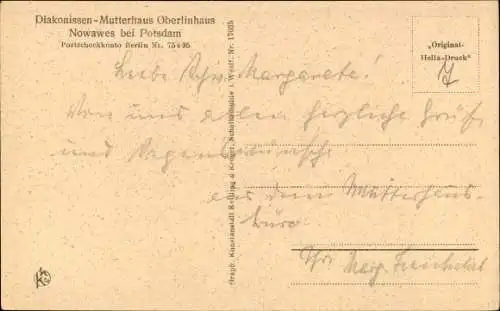 Diakonissen-Mutterhaus Oberlinhaus
Nowawes bei Potsdam
Postscheckkonto Berlin Nr.
„Original-
Helia-Druck"
Liebe Schw. Margarete!
Von uns allen herzliche Grüße
und Segenswünsche
aus dem Mutterhaus-
büro
Ihr Marg.
Graph. Kunstanstalt Kettling & Krüger, Schalksmühle i. Westf. Nr.